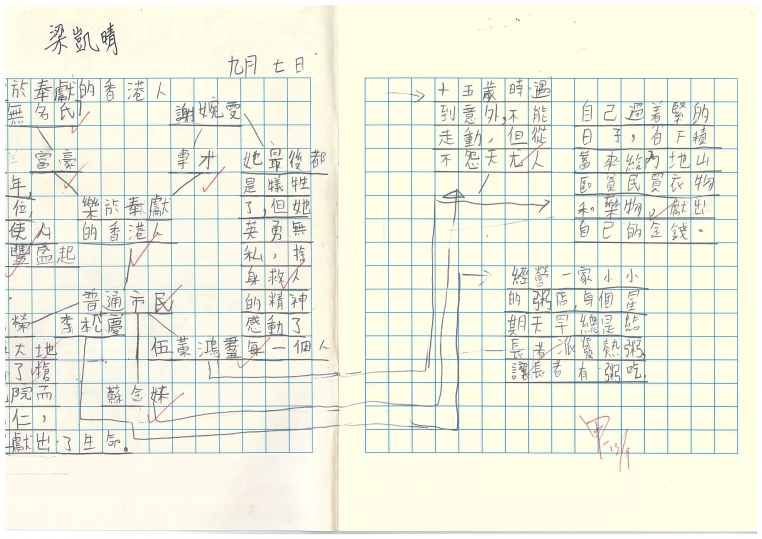 梁凱晴
九月七日
於奉獻的香港人
無名氏
謝婉雯
富豪
專才
年,
位,
使人
豐盛起
樂於奉獻
的香港人
她最後都
是犧牲
了,但她
英勇無
私,捨
身救人
的精神
感動了
每一個人
普通市民
榮
李松慶
伍葉鴻羣
大地
了搶
院而
仁,
獻出了生命。
蘇金妹
十五歲時遇
到意外,不能
走動,但從
不怨天尤人
自己過着緊的
日子,省下積
蓄來給內地山
區貧民買衣物
和藥物,獻出
自己的金錢。
經營一家小小
的粥店每個星
期天早總是給
長者派發熱粥,
讓長者有粥吃.
甲
13/9